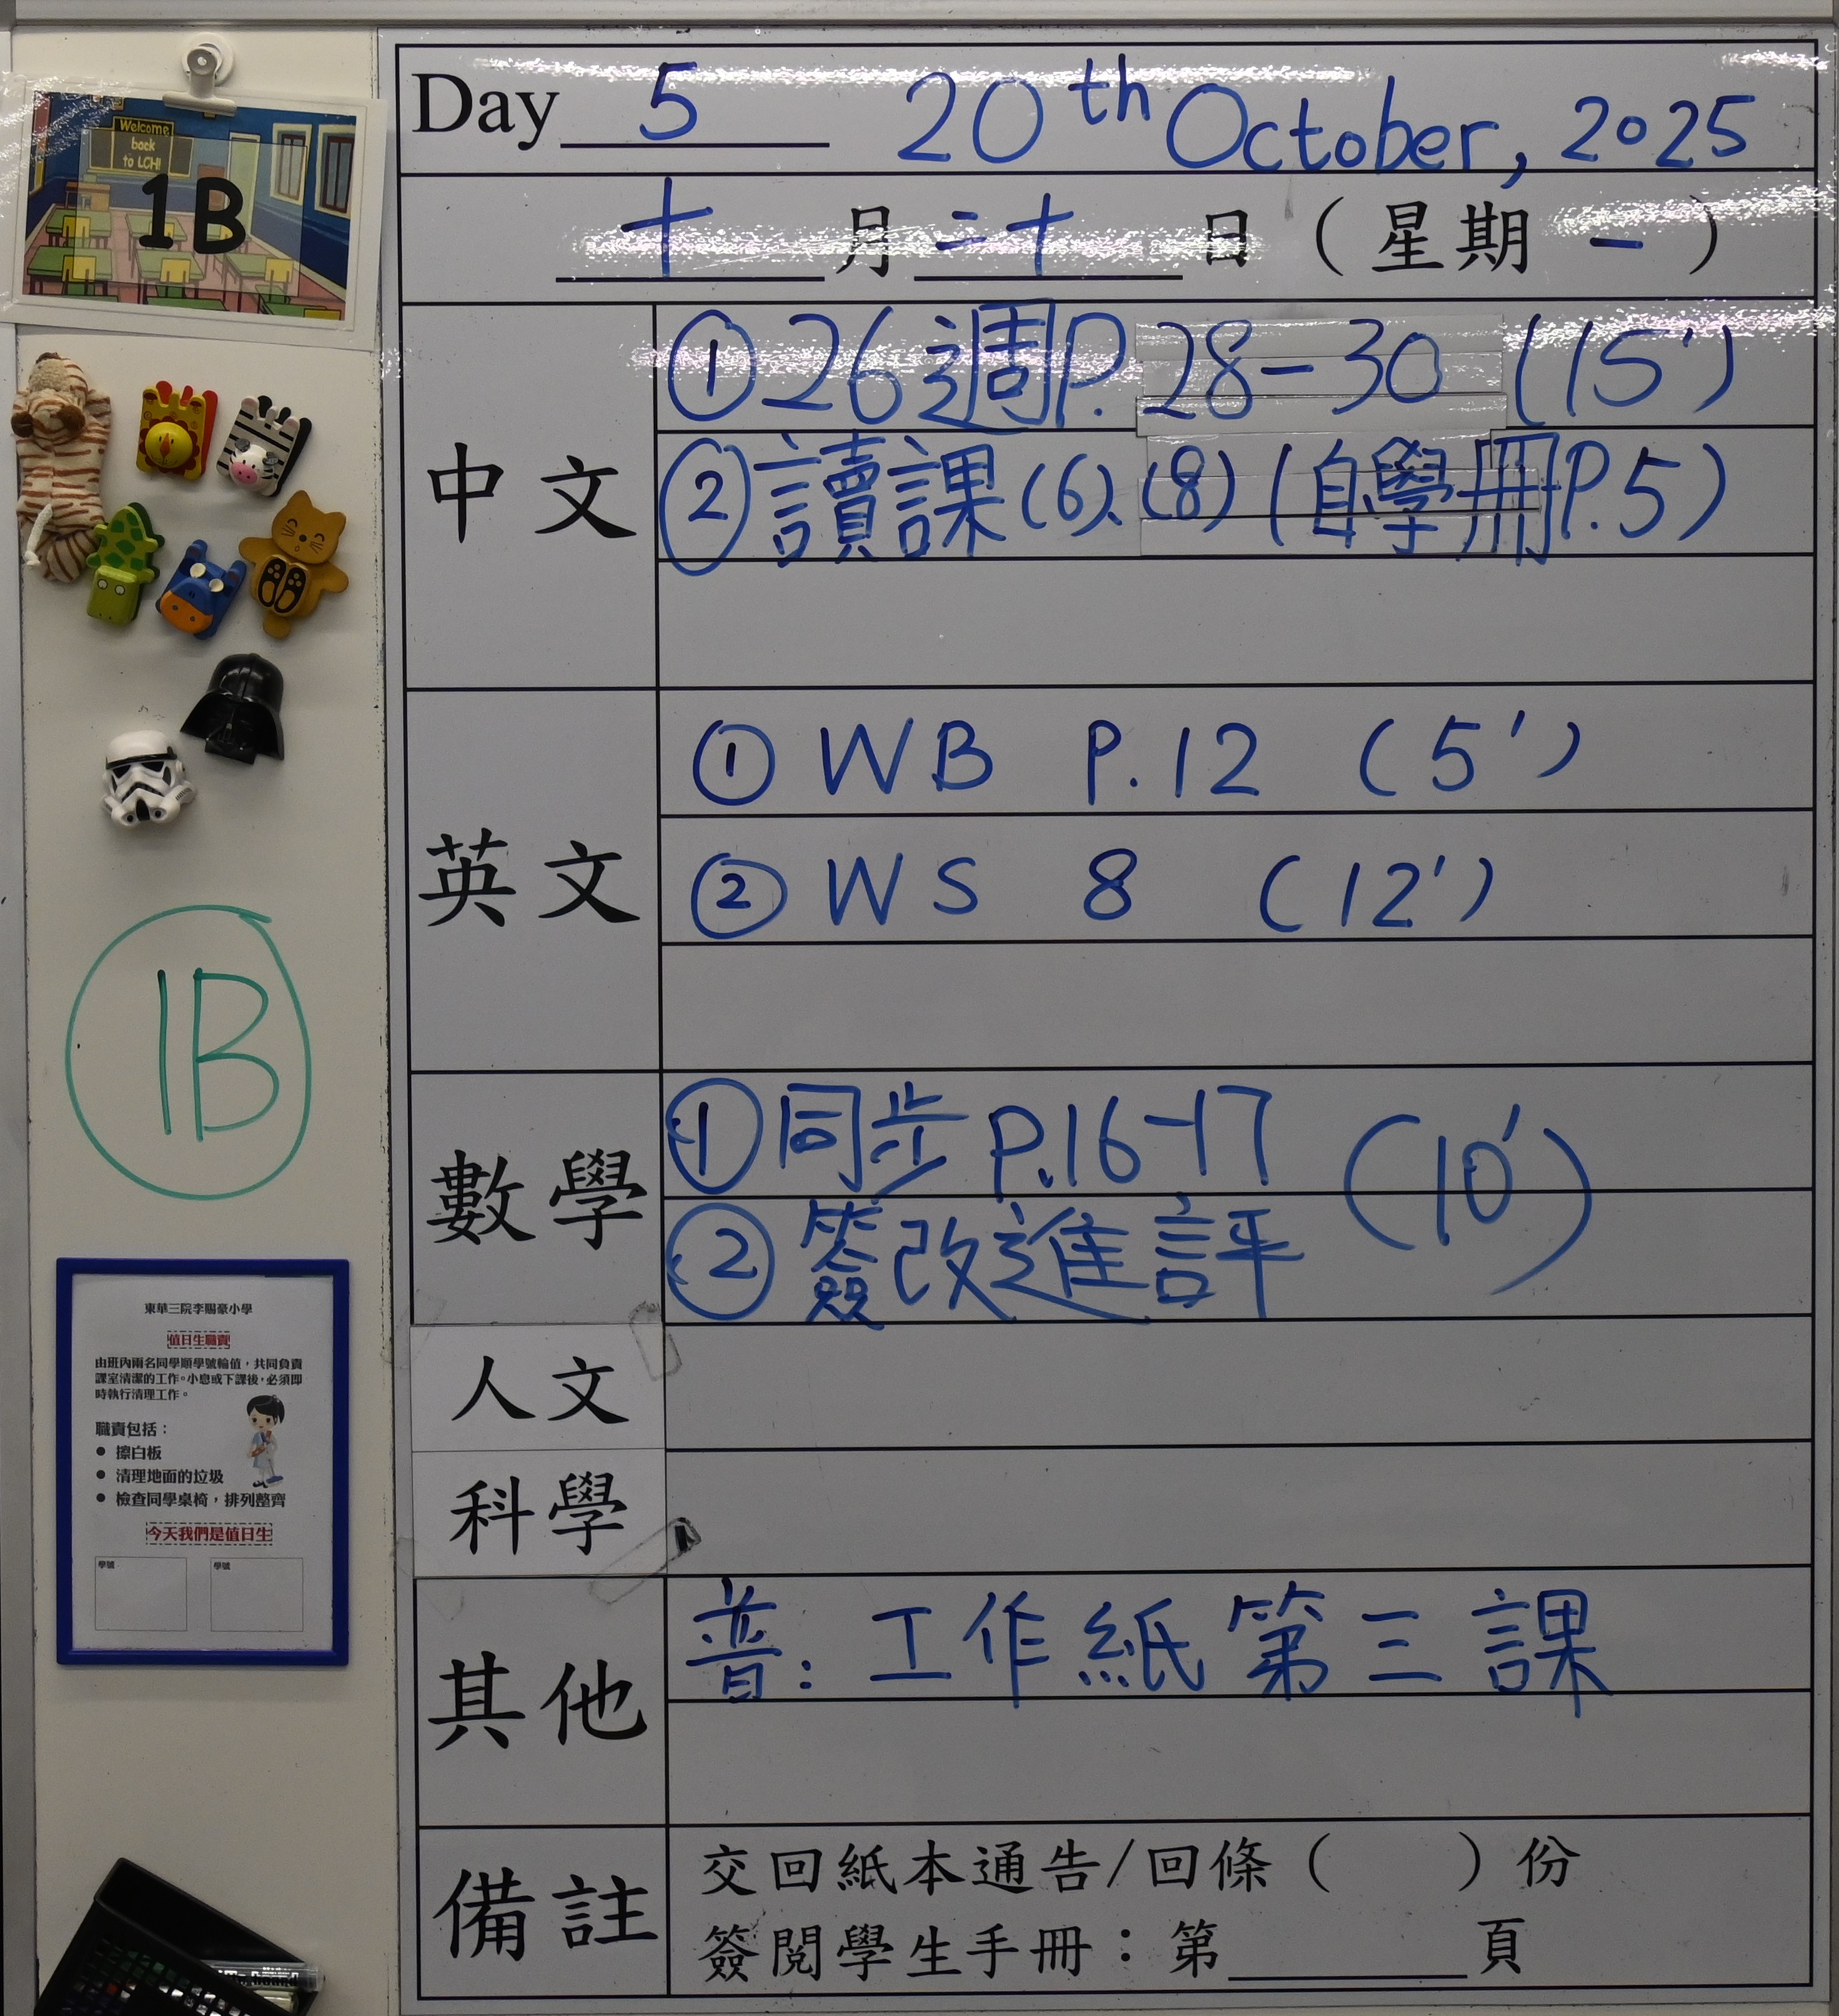 Day 5 20th October, 2025
十月二十日（星期一）
Welcome back to LCH!
1B
中文
①26週P.28-30 (15')
②讀課(6)、(8) (自學冊P.5)
英文
① WB P.12 (5')
② WS 8 (12')
1B
數學
①同步P.16-17 (10')
②簽改進評
人文
科學
其他
普：工作紙第三課
備註
交回紙本通告/回條（ ）份
簽閱學生手冊：第______頁
東華三院李賜豪小學
值日生職責
由班內兩名同學順學號輪值，共同負責
課室清潔的工作。小息或下課後，必須即
時執行清理工作。
職責包括：
● 擦白板
● 清理地面的垃圾
● 檢查同學桌椅，排列整齊
今天我們是值日生
學號 學號